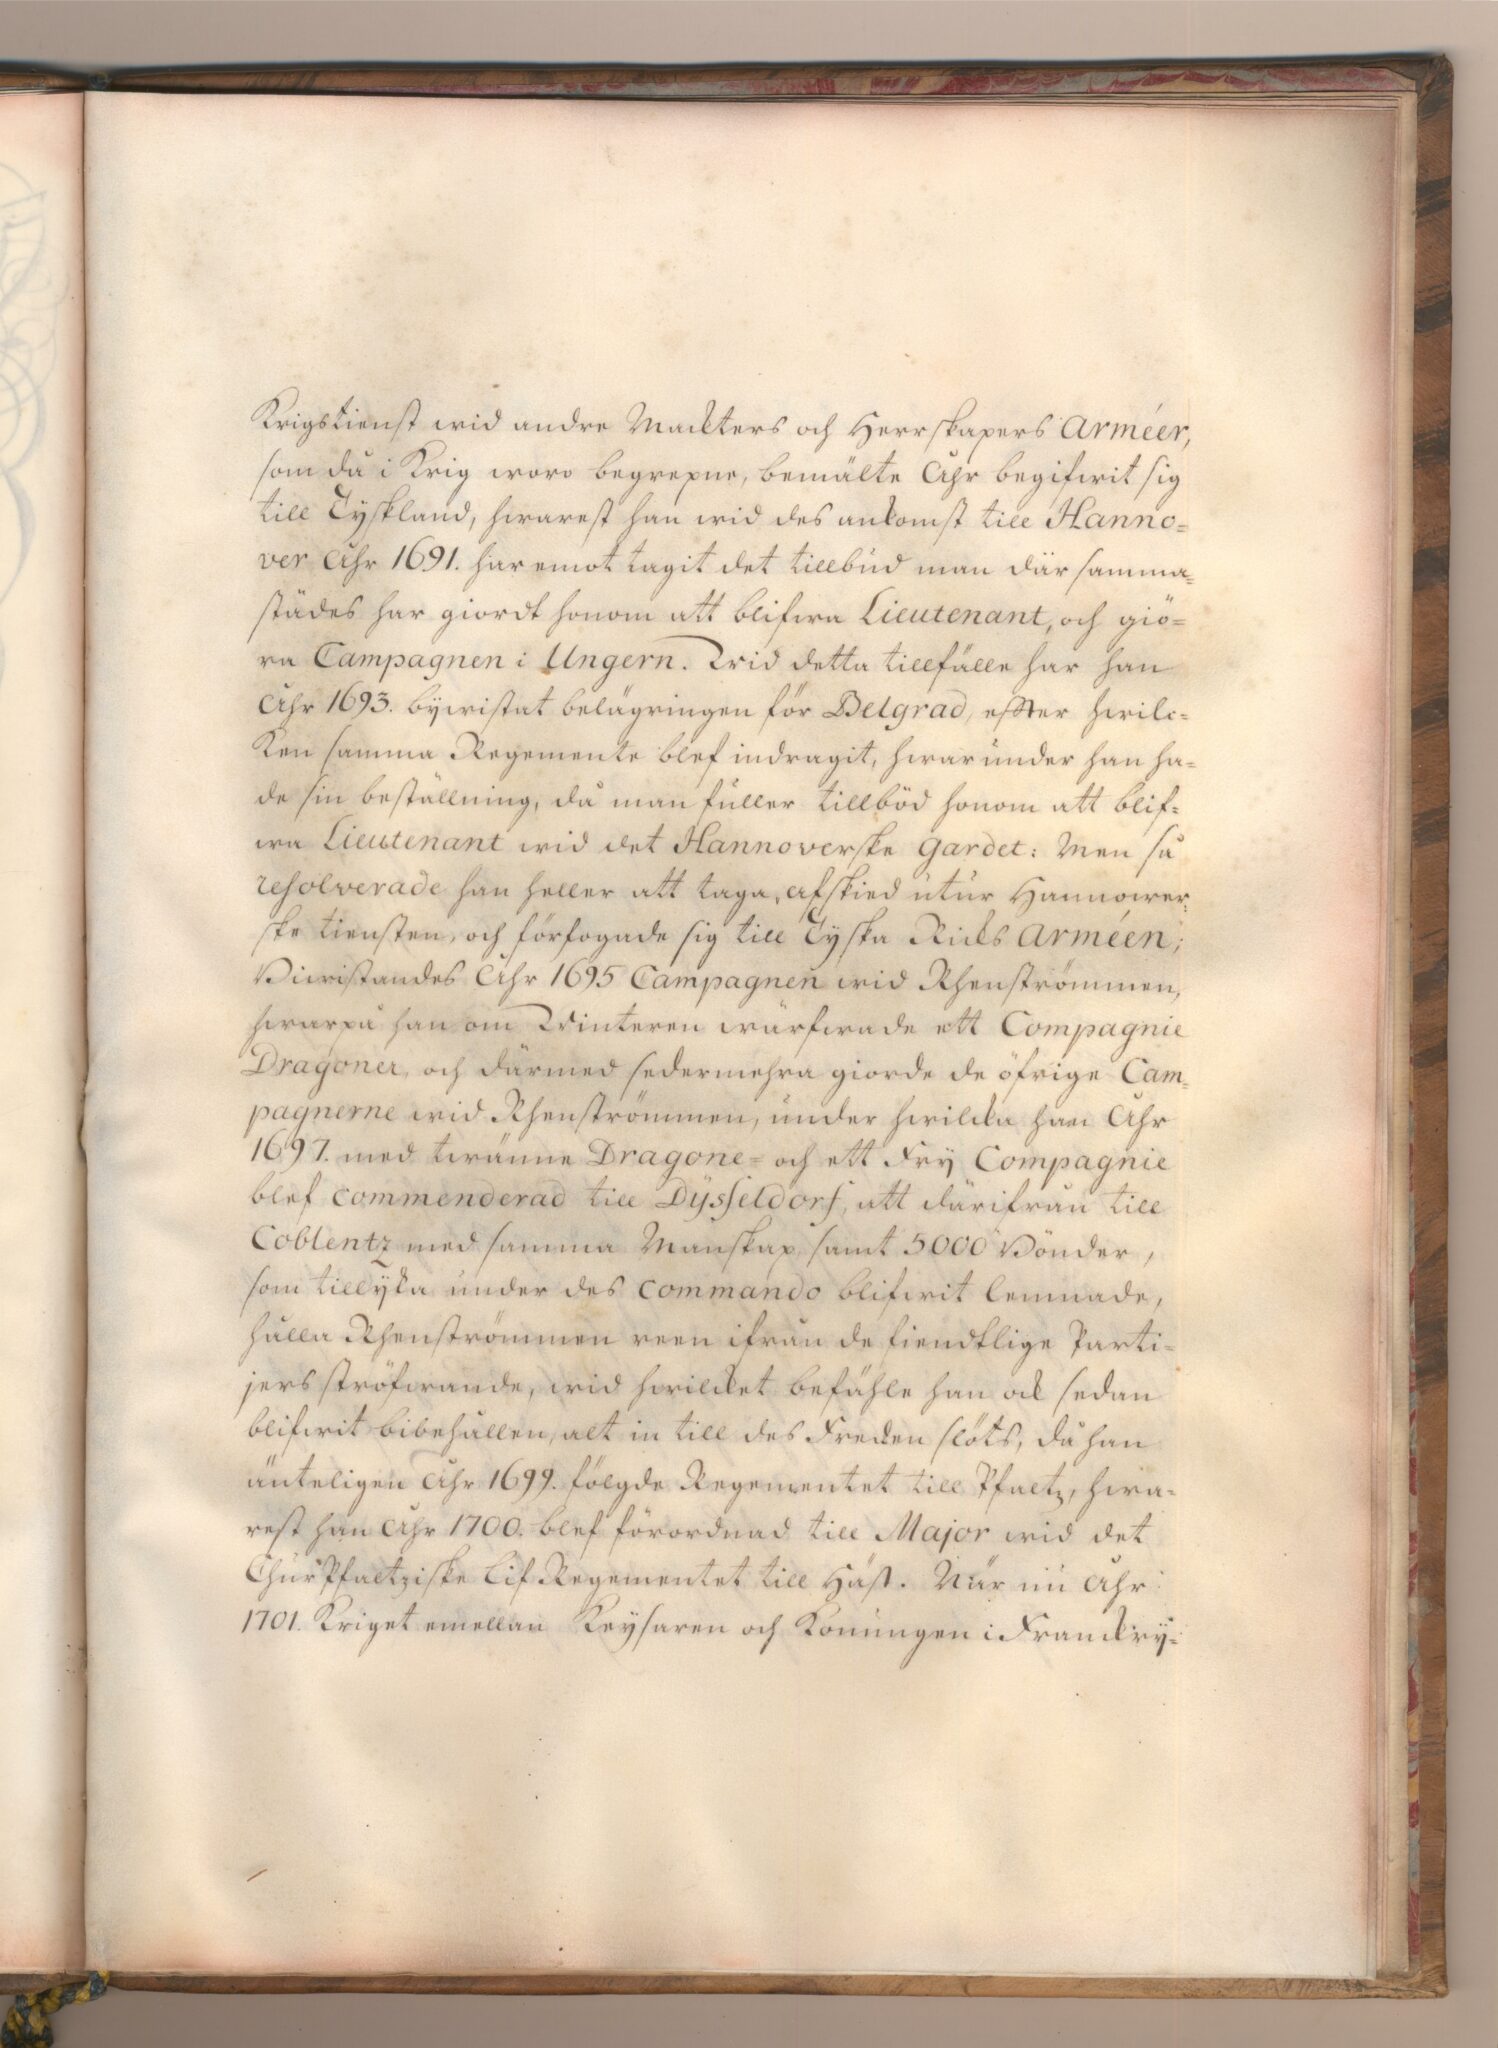 Krigstienst wid andre Mackters och Herrskapers Arméer,
som då i Krig woro begrepne, bemälte Ahr begifwit sig
till Tyskland, hwarest han wid des ankomst till Hanno-
ver Ahr 1691. har emot tagit det tillbud man där samma-
städes har giordt honom att blifwa Lieutenant, och giö-
ra Campagnen i Ungern. Wid detta tillfälle har han
Ahr 1693. bywistat belägringen för Belgrad, effter hwilc-
ken samma Regemente blef indragit, hwarunder han ha-
de sin beställning, då man fuller tillböd honom att blif-
wa Lieutenant wid det Hannoverske Gardet: Men så
resolverade han heller att taga afskied utur Hannower-
ske tiensten, och förfogade sig till Tyska Ricks Arméen;
Biwistandes Ahr 1695 Campagnen wid Rhenströmmen,
hwarpå han om Winteren wärfwade ett Compagnie
Dragoner, och därmed sedermehra giorde de öfrige Cam-
pagnerne wid Rhenströmmen, under hwilcka han Ahr
1697. med twänne Dragone- och ett Fry Compagnie
blef commenderad till Dÿsseldorf, att därifrån till
Coblentz med samma Manskap samt 5000 Bönder,
som tillÿka under des commando blifwit lemnade,
hålla Rhenströmmen reen ifrån de fiendtlige Parti-
jers ströfwande, wid hwilcket befähle han ock sedan
blifwit bibehållen, alt in till des Freden slöts, då han
änteligen Ahr 1699. fölgde Regementet till Pfaltz, hwa-
rest han Ahr 1700. blef förordnad till Major wid det
ChurPfaltziske Lif Regementet till Häst. När nu Ahr
1701. Kriget emellan Keysaren och Konungen i Franckry-